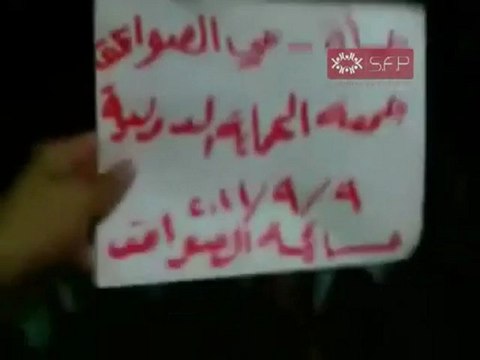 حماه - حي الصواعق
S.F.P
جمعة الحماية الدولية
٢٠١١/٩/٩
مسائية الصواعق